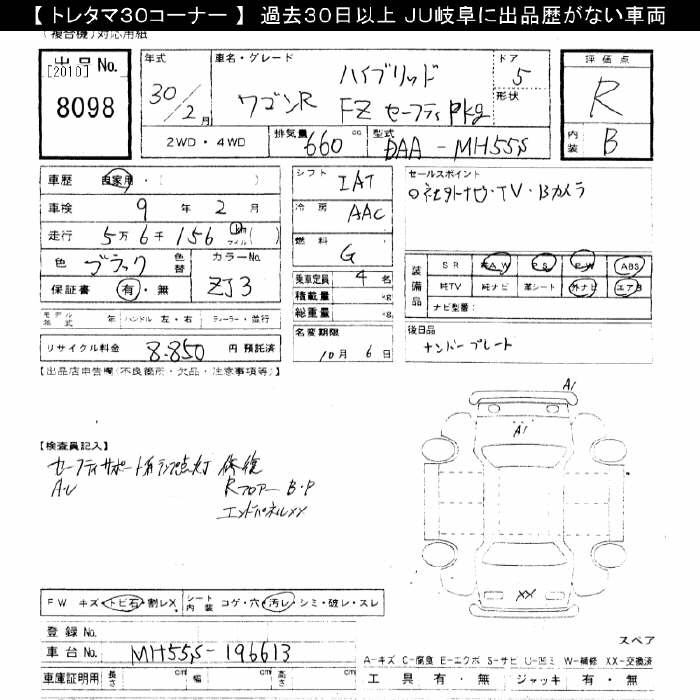 【 トレタマ30コーナー 】 過去30日以上 JU岐阜に出品歴がない車両
(複合機)対応用紙
出品No. [2010] 8098
年式 30/2月
車名・グレード ワゴンR ハイブリッド FZ セーフティPkg
ドア 5 形状
評価点 R
内装 B
2WD・4WD
排気量 660 cc
型式 DAA-MH55S
車歴 自家用・( )
車検 9年 2月
走行 5万6千156 km マイル ( )
色 ブラック 色替
カラーNo. ZJ3
保証書 有・無
モデル年式 年 ハンドル 左・右 ディーラー・並行
リサイクル料金 8.850 円 預託済
シフト IAT
冷房 AAC
燃料 G
乗車定員 4 名
積載量 kg
総重量 kg
名変期限 10月 6日
セールスポイント
ナビ・TV・Bカメラ
装備品 SR 純AW PS PW ABS
純TV 純ナビ 革シート 外ナビ エアB
ナビ型番:
後日品
ナンバープレート
【出品店申告欄(不良箇所・欠品・注意事項等)】
【検査員記入】
セーフティサポート系ランプ点灯 修復
A・U Rフロアー B・P
エンドパネルXX
A1
A1
XX
FW キズ・トビ石・割レX
シート内装 コゲ・穴・汚レ・シミ・破レ・スレ
登録No.
車台No. MH55S-196613
車庫証明用 長さ cm 幅 cm 高さ cm
スペア
A-キズ C-腐食 E-エクボ S-サビ U-凹ミ W-補修 XX-交換済
工具 有・無 ジャッキ 有・無